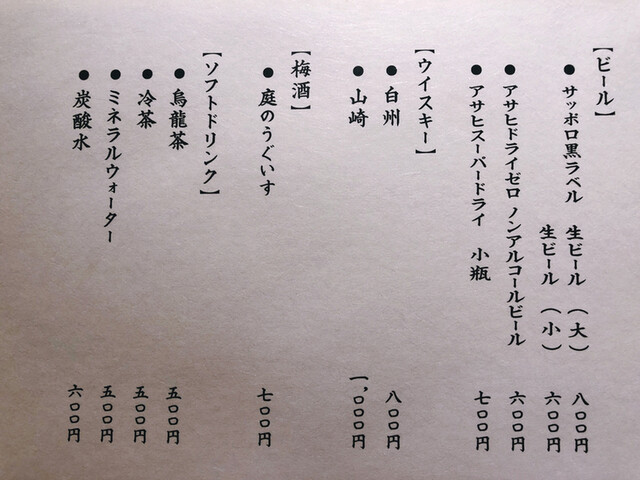 【ビール】
●サッポロ黒ラベル 生ビール (大) 八〇〇円
生ビール (小) 六〇〇円
●アサヒドライゼロ ノンアルコールビール 六〇〇円
●アサヒスーパードライ 小瓶 七〇〇円
【ウイスキー】
●白州 八〇〇円
●山崎 一,〇〇〇円
【梅酒】
●庭のうぐいす 七〇〇円
【ソフトドリンク】
●烏龍茶 五〇〇円
●冷茶 五〇〇円
●ミネラルウォーター 五〇〇円
●炭酸水 六〇〇円